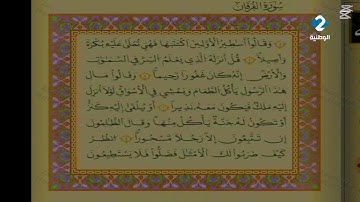 سُورَةُ الفُرْقَانِ
2
الوطنية
وَقَالُوا أَسَاطِيرُ الْأَوَّلِينَ اكْتَتَبَهَا فَهِيَ تُمْلَىٰ عَلَيْهِ بُكْرَةً
وَأَصِيلًا ۝ قُلْ أَنزَلَهُ الَّذِي يَعْلَمُ السِّرَّ فِي السَّمَاوَاتِ
وَالْأَرْضِ إِنَّهُ كَانَ غَفُورًا رَّحِيمًا ۝ وَقَالُوا مَالِ
هَٰذَا الرَّسُولِ يَأْكُلُ الطَّعَامَ وَيَمْشِي فِي الْأَسْوَاقِ لَوْلَا أُنزِلَ
إِلَيْهِ مَلَكٌ فَيَكُونَ مَعَهُ نَذِيرًا ۝ أَوْ يُلْقَىٰ إِلَيْهِ كَنزٌ
أَوْ تَكُونُ لَهُ جَنَّةٌ يَأْكُلُ مِنْهَا وَقَالَ الظَّالِمُونَ
إِن تَتَّبِعُونَ إِلَّا رَجُلًا مَّسْحُورًا ۝ انظُرْ
كَيْفَ ضَرَبُوا لَكَ الْأَمْثَالَ فَضَلُّوا فَلَا يَسْتَطِيعُونَ